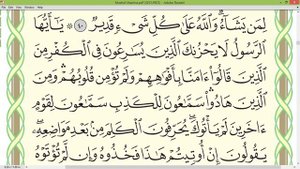 (SECURED) - Adobe Reader
لِمَن يَشَآءُ ۗ وَٱللَّهُ عَلَىٰ كُلِّ شَىْءٍ قَدِيرٌ ٤٠ ۞ يَـٰٓأَيُّهَا
ٱلرَّسُولُ لَا يَحْزُنكَ ٱلَّذِينَ يُسَـٰرِعُونَ فِى ٱلْكُفْرِ مِنَ
ٱلَّذِينَ قَالُوٓا۟ ءَامَنَّا بِأَفْوَٰهِهِمْ وَلَمْ تُؤْمِن قُلُوبُهُمْ ۛ وَمِنَ
ٱلَّذِينَ هَادُوا۟ ۛ سَمَّـٰعُونَ لِلْكَذِبِ سَمَّـٰعُونَ لِقَوْمٍ
ءَاخَرِينَ لَمْ يَأْتُوكَ ۖ يُحَرِّفُونَ ٱلْكَلِمَ مِنۢ بَعْدِ مَوَاضِعِهِۦ ۖ
يَقُولُونَ إِنْ أُوتِيتُمْ هَـٰذَا فَخُذُوهُ وَإِن لَّمْ تُؤْتَوْهُ